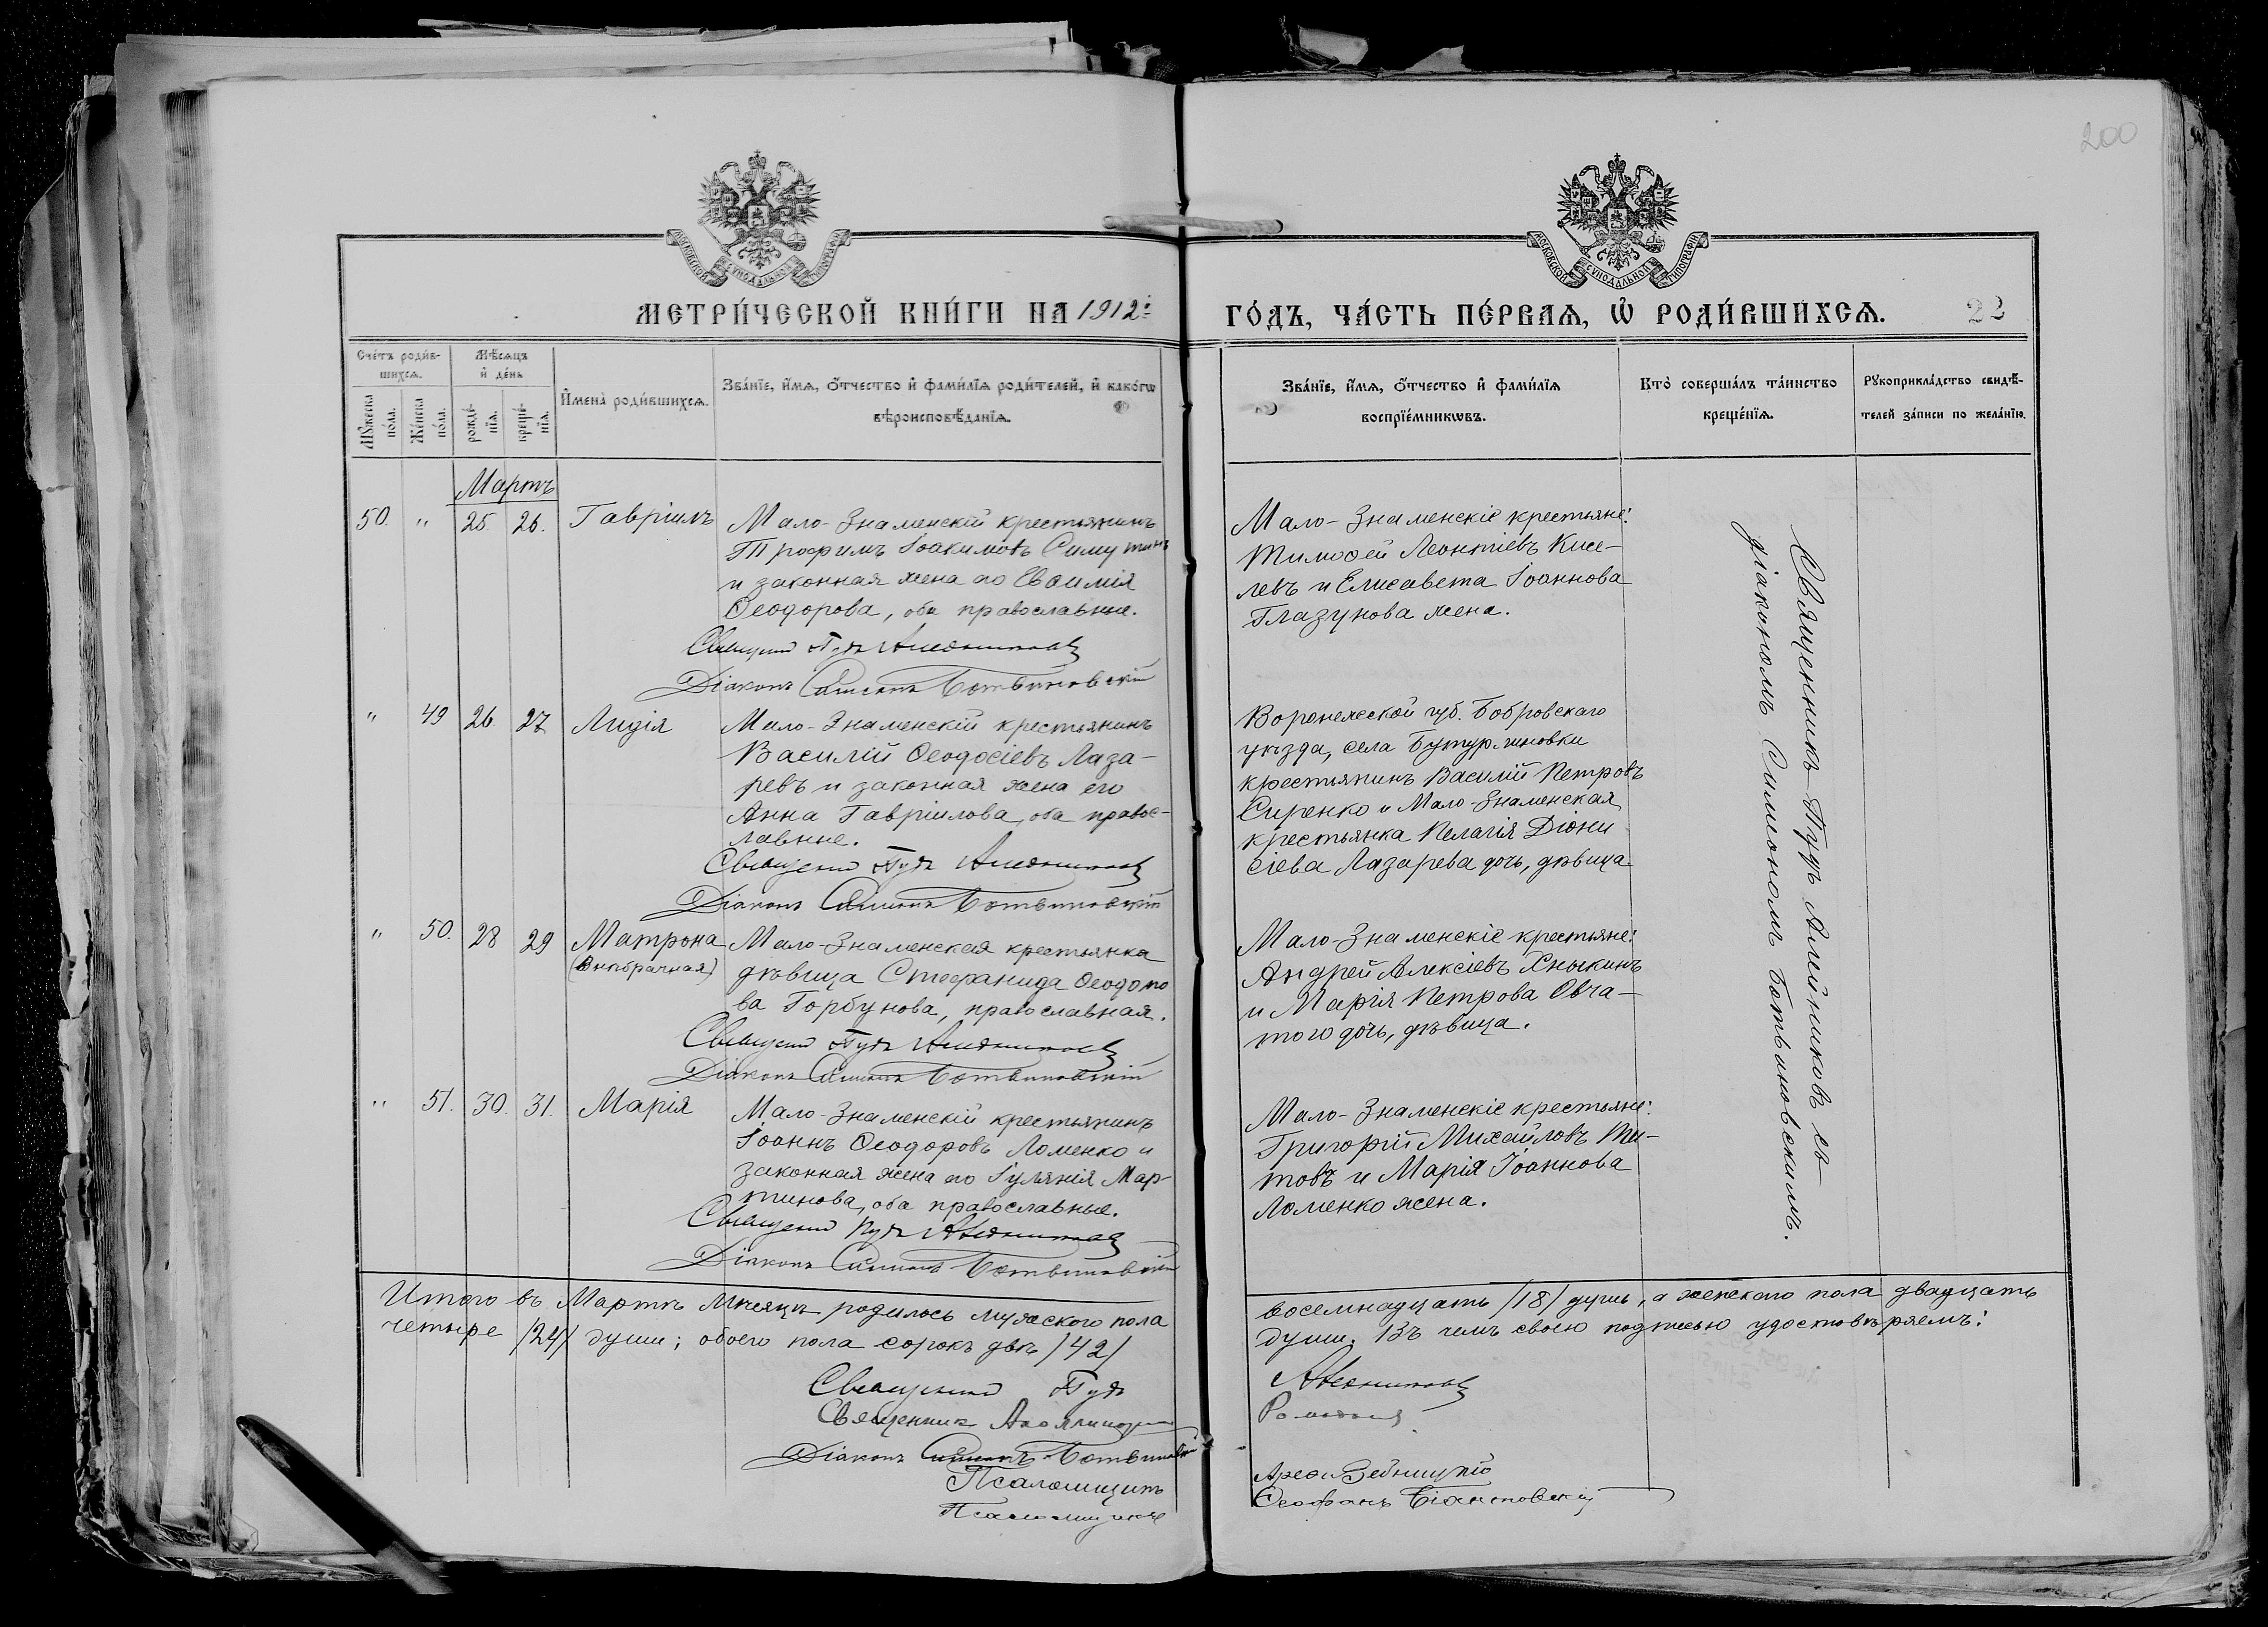 200
МОСКОВСКОЙ СѴНОДАЛЬНОЙ ТИПОГРАФІИ
МОСКОВСКОЙ СѴНОДАЛЬНОЙ ТИПОГРАФІИ
МЕТРИ́ЧЕСКОЙ КНИ́ГИ НА 1912.
ГО́ДЪ, ЧА́СТЬ ПЕ́РВАѦ, Ѡ҆ РОДИ́ВШИХСѦ. 22
Сче́тъ роди́в-
шихсѧ.
Мꙋ́жеска по́ла.
Же́нска по́ла.
Мѣ́сѧцъ
и҆ де́нь
рожде́-
нїѧ.
креще́-
нїѧ.
И҆мена̀ роди́вшихсѧ.
Зва́нїе, и҆́мѧ, ѻ҆́тчество и҆ фами́лїѧ роди́телей, и҆ како́гѡ
вѣроисповѣ́данїѧ.
Зва́нїе, и҆́мѧ, ѻ҆́тчество и҆ фами́лїѧ
воспрїе́мникѡвъ.
Кто̀ соверша́лъ та́инство
креще́нїѧ.
Рꙋкоприкла́дство свидѣ́-
телей за́писи по жела́нїю.
Мартъ
50. " 25 26. Гавріилъ
Мало-Знаменскій крестьянинъ
Трофимъ Іоакимовъ Симутинъ
и законная жена его Евѳимія
Ѳеодорова, оба православные.
Священникъ Пудъ Алейниковъ
Діаконъ Симеонъ Ботвиновскій
Мало-Знаменскіе крестьяне:
Тимоѳей Леонтіевъ Кисе-
левъ и Елисавета Іоаннова
Глазунова жена.
" 49 26. 27 Лидія
Мало-Знаменскій крестьянинъ
Василій Ѳеодосіевъ Лаза-
ревъ и законная жена его
Анна Гавріилова, оба правос-
лавные.
Священникъ Пудъ Алейниковъ
Діаконъ Симеонъ Ботвиновскій
Воронежской губ. Бобровскаго
уѣзда, села Бутурлиновки
крестьянинъ Василій Петровъ
Сиренко и Мало-Знаменская
крестьянка Пелагія Діони
сіева Лазарева дочь, дѣвица.
" 50. 28 29 Матрона
(Внѣбрачная)
Мало-Знаменская крестьянка
дѣвица Стефанида Ѳеодоро
ва Горбунова, православная.
Священникъ Пудъ Алейниковъ
Діаконъ Симеонъ Ботвиновскій
Мало-Знаменскіе крестьяне:
Андрей Алексіевъ Хныкинъ
и Марія Петрова Овча-
того дочь, дѣвица.
" 51. 30. 31. Марія
Мало-Знаменскій крестьянинъ
Іоаннъ Ѳеодоровъ Ломенко и
законная жена его Іуліанія Мар-
тинова, оба православные.
Священникъ Пудъ Алейниковъ
Діаконъ Симеонъ Ботвиновскій
Мало-Знаменскіе крестьяне:
Григорій Михайловъ Ти-
товъ и Марія Іоаннова
Ломенко жена.
Священникъ Пудъ Алейниковъ съ
діакономъ Симеономъ Ботвиновскимъ.
Итого въ Мартѣ Мѣсяцѣ родилось мужского пола
восемнадцать /18/ душъ, а женскаго пола двадцать
четыре /24/ души; обоего пола сорокъ двѣ /42/
души. Въ чемъ своею подписью удостовѣряемъ:
Священникъ Пудъ Алейниковъ
Священникъ
Діаконъ Симеонъ Ботвиновскій
Псаломщикъ
Псаломщикъ Ѳеофанъ